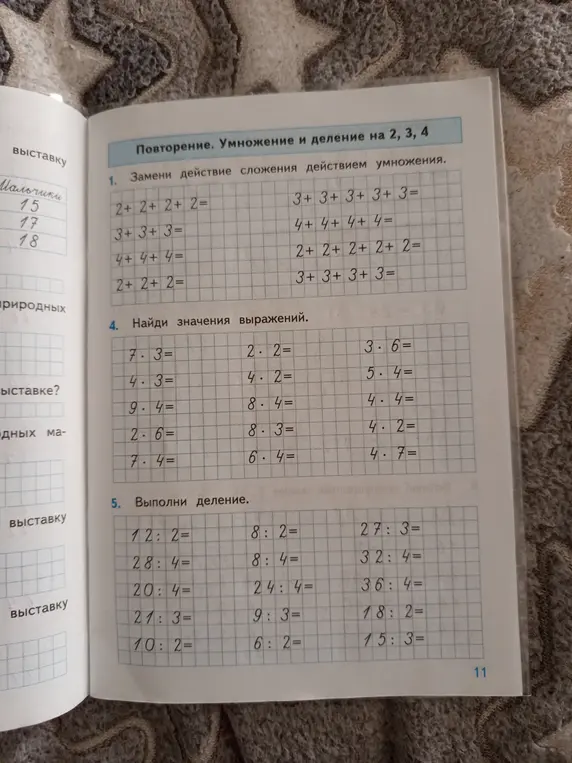 выставку
Мальчики
15
17
18
природных
выставке?
ма-
выставку
выставку
Повторение. Умножение и деление на 2, 3, 4
1. Замени действие сложения действием умножения.
2+ 2+ 2+ 2= 3+ 3+ 3+ 3+ 3=
3+ 3+ 3= 4+ 4+ 4+ 4=
4+ 4+ 4= 2+ 2+ 2+ 2+ 2=
2+ 2+ 2= 3+ 3+ 3+ 3=
4. Найди значения выражений.
7 · 3= 2 · 2= 3 · 6=
4 · 3= 4 · 2= 5 · 4=
9 · 4= 8 · 4= 4 · 4=
2 · 6= 8 · 3= 4 · 2=
7 · 4= 6 · 4= 4 · 7=
5. Выполни деление.
12: 2= 8: 2= 27: 3=
28: 4= 8: 4= 32: 4=
20: 4= 24: 4= 36: 4=
21: 3= 9: 3= 18: 2=
10: 2= 6: 2= 15: 3=
11